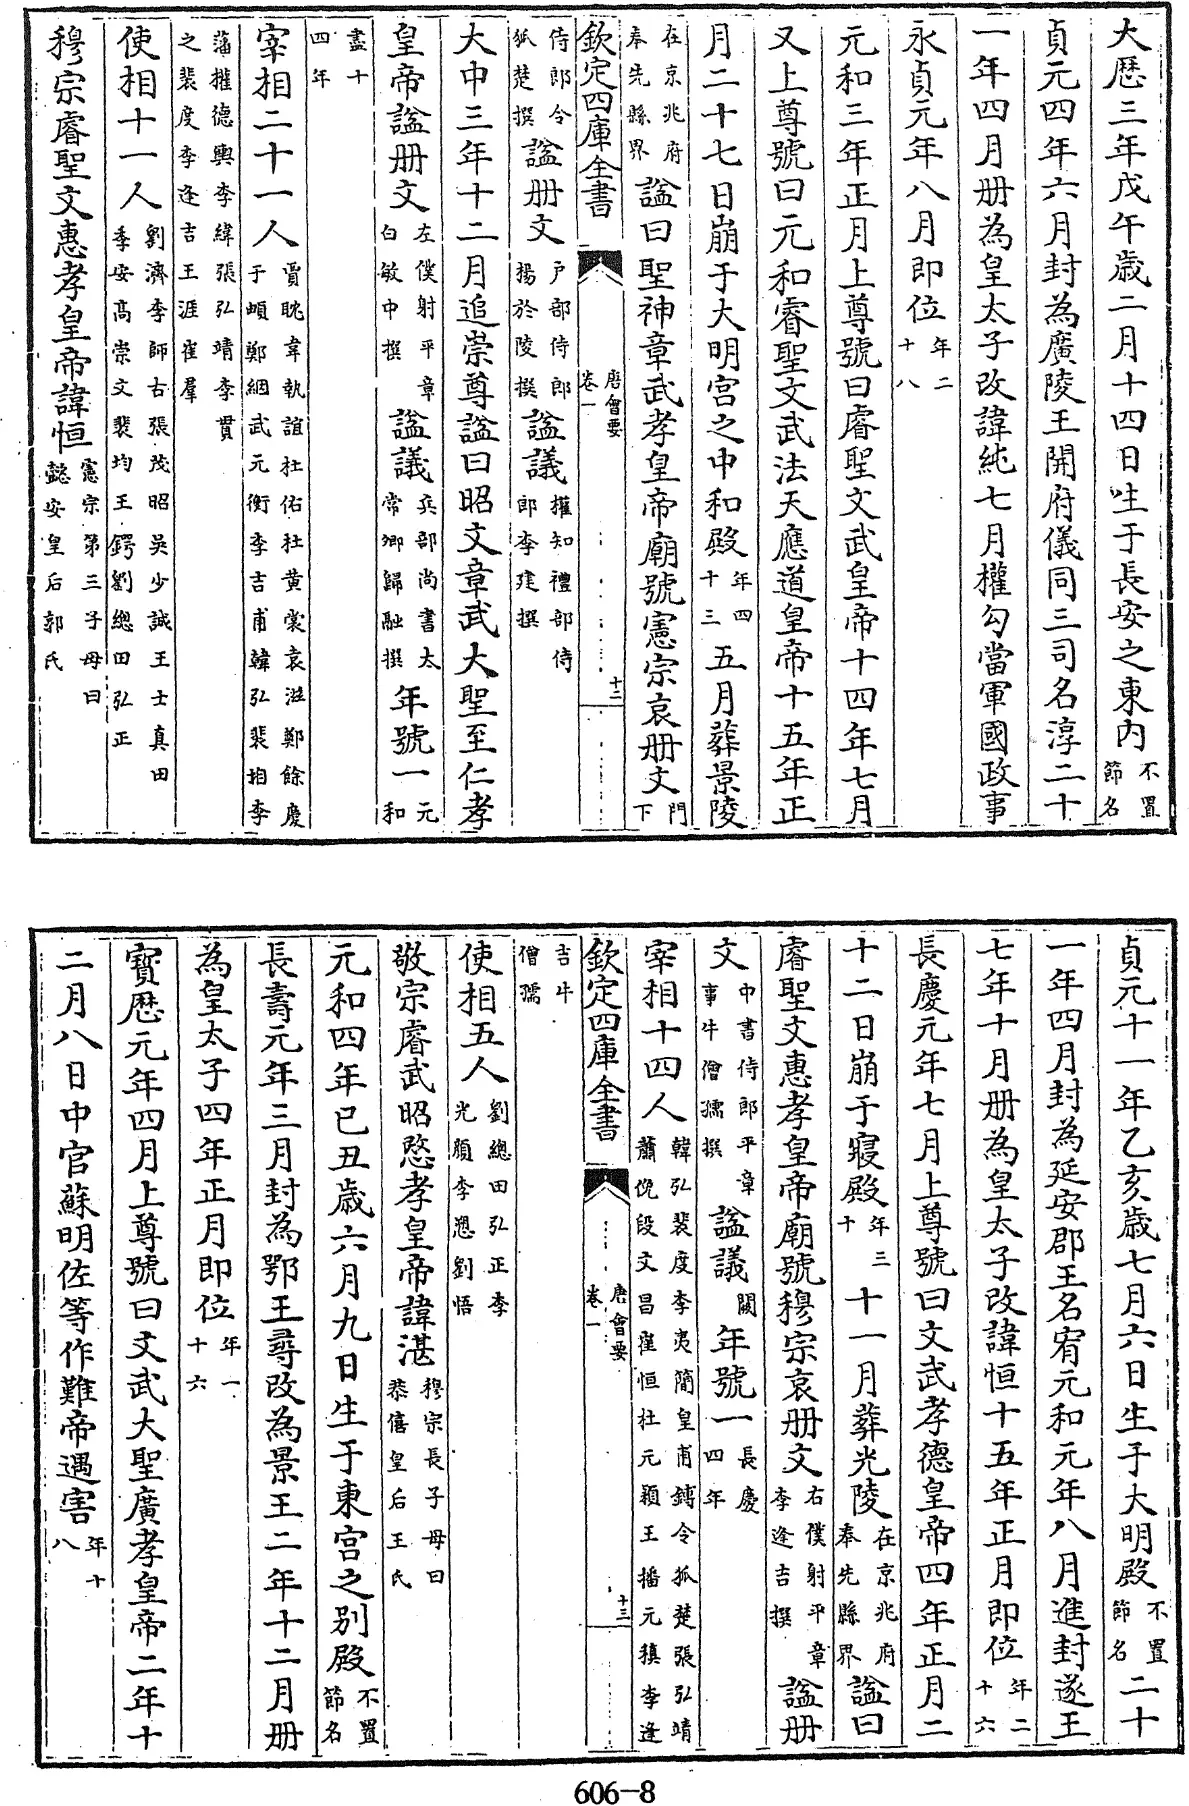 大歷三年戊午歲二月十四日生于長安之東內不置節名
貞元四年六月封為廣陵王開府儀同三司名淳二十
一年四月冊為皇太子改諱純七月權勾當軍國政事
永貞元年八月即位年二十八
元和三年正月上尊號曰睿聖文武皇帝十四年七月
又上尊號曰元和睿聖文武法天應道皇帝十五年正
月二十七日崩于大明宮之中和殿年四十三五月葬景陵
在京兆府奉先縣界諡曰聖神章武孝皇帝廟號憲宗哀冊文門下
欽定四庫全書 唐會要 卷一 十二
侍郎令狐楚撰諡冊文戶部侍郎揚於陵撰諡議權知禮部侍郎李建撰
大中三年十二月追崇尊諡曰昭文章武大聖至仁孝
皇帝諡冊文左僕射平章白敏中撰諡議兵部尚書太常卿歸融撰年號一元和
盡十四年
宰相二十一人賈耽韋執誼杜佑杜黃裳袁滋鄭餘慶于頔鄭絪武元衡李吉甫韓弘裴垍李
藩權德輿李絳張弘靖李貫之裴度李逢吉王涯崔羣
使相十一人劉濟李師古張茂昭吳少誠王士真田季安高崇文裴均王鍔劉總田弘正
穆宗睿聖文惠孝皇帝諱恒憲宗第三子母曰懿安皇后郭氏
貞元十一年乙亥歲七月六日生于大明殿不置節名二十
一年四月封為延安郡王名宥元和元年八月進封遂王
七年十月冊為皇太子改諱恒十五年正月即位年二十六
長慶元年七月上尊號曰文武孝德皇帝四年正月二
十二日崩于寢殿年三十十一月葬光陵在京兆府奉先縣界諡曰
睿聖文惠孝皇帝廟號穆宗哀冊文右僕射平章李逢吉撰諡冊
文中書侍郎平章事牛僧孺撰諡議闕年號一長慶四年
宰相十四人韓弘裴度李夷簡皇甫鎛令狐楚張弘靖蕭俛段文昌崔恒杜元穎王播元稹李逢
欽定四庫全書 唐會要 卷一 十三
吉牛僧孺
使相五人劉總田弘正李光顏李愬劉悟
敬宗睿武昭愍孝皇帝諱湛穆宗長子母曰恭僖皇后王氏
元和四年己丑歲六月九日生于東宮之別殿不置節名
長壽元年三月封為鄂王尋改為景王二年十二月冊
為皇太子四年正月即位年一十六
寶歷元年四月上尊號曰文武大聖廣孝皇帝二年十
二月八日中官蘇明佐等作難帝遇害年十八
606-8